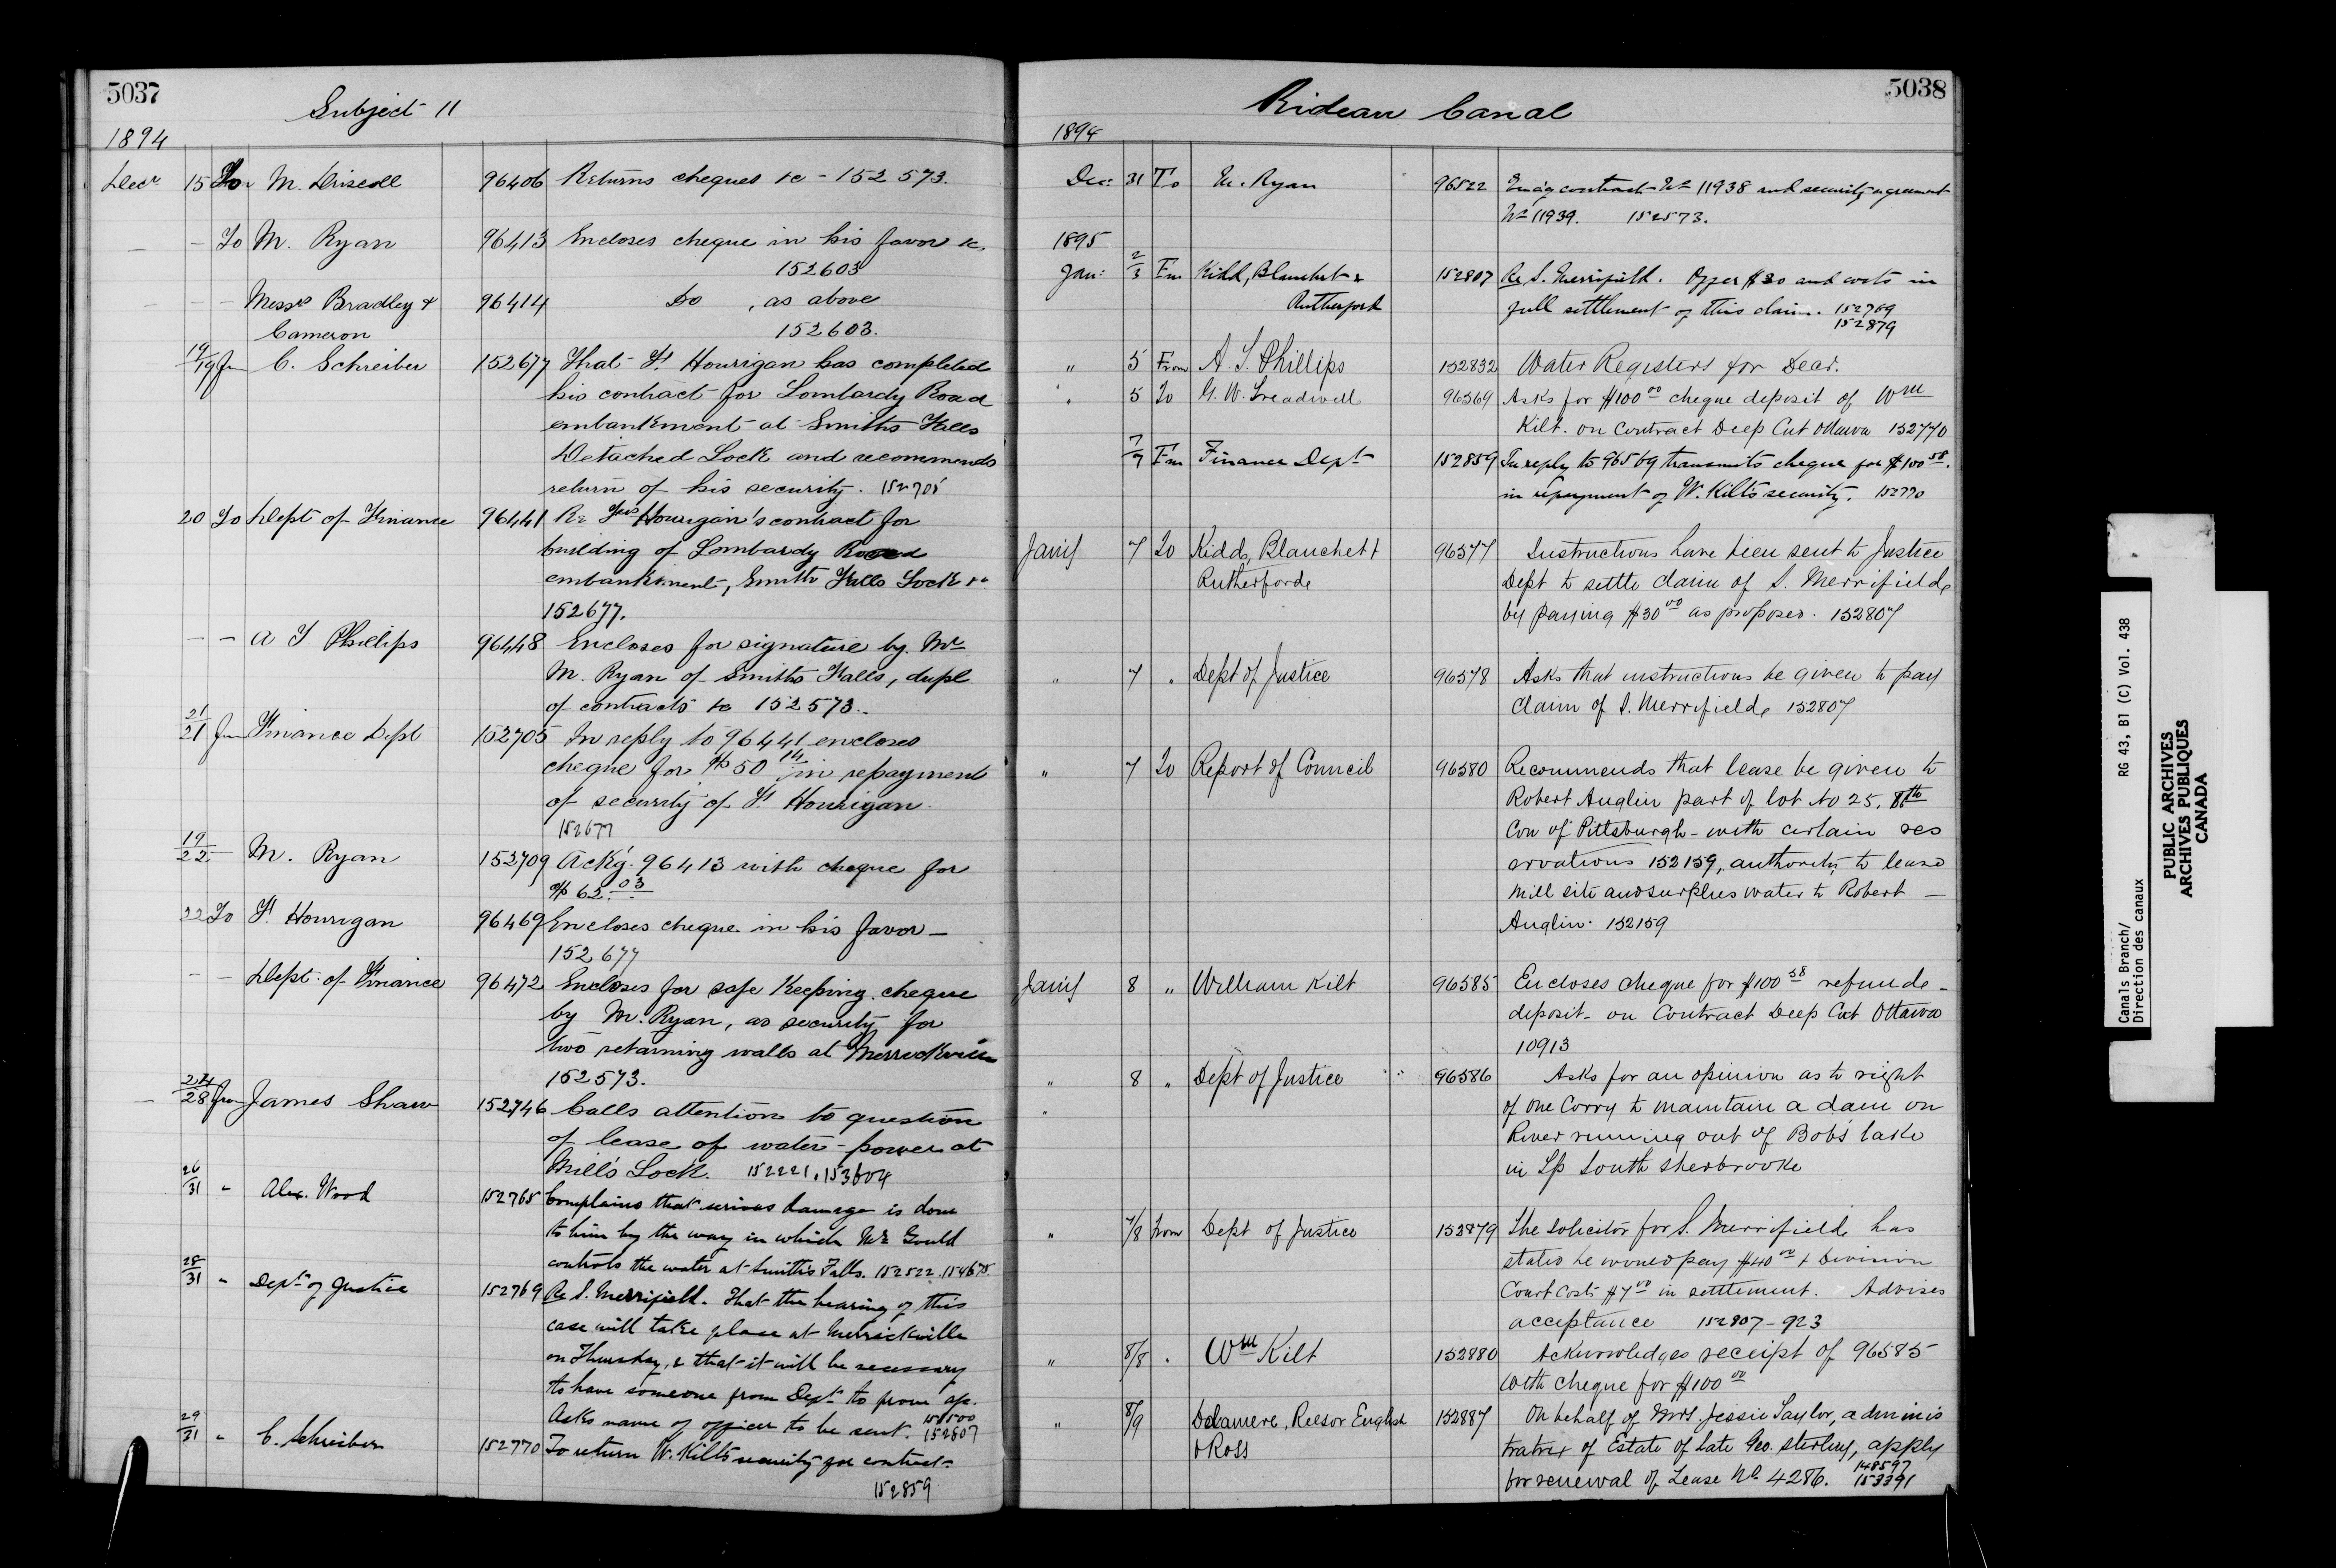 5037
Subject 11
1894
Decr 15 To M. Driscoll 96406 Returns cheques &c - 152573.
— - To M. Ryan 96413 Encloses cheque in his favor &c
152603
- - - Messrs Bradley & 96414 Do , as above
Cameron 152603.
19/19 fm C. Schreiber 152677 That Fs Hourigan has completed
his contract for Lombardy Road
embankment at Smiths Falls
Detached Lock and recommends
return of his security. 152705
20 To Dept of Finance 96441 Re Hourigan's contract for
building of Lombardy Road
embankment, Smiths Falls Lock &c
152677.
- - A T Phillips 96448 Encloses for signature by Mr
M. Ryan of Smiths Falls, dupl
of contracts &c 152573.
21/21 fm Finance Dept 152705 In reply to 96441 encloses
cheque for $50 14 in repayment
of security of Fs Hourigan
152677
19/22 - M. Ryan 152709 Ack'g. 96413 with cheque for
$62.03
22 To Fs Hourigan 96469 Encloses cheque in his favor —
152677
- - Dept. of Finance 96472 Encloses for safe keeping cheque
by M. Ryan, as security for
two retaining walls at Merrickville
152573.
— 24/28 fm James Shaw 152746 Calls attention to question
of lease of water-power at
Mills Lock. 152221, 153604
26/31 " Alex. Wood 152765 Complains that serious damage is done
to him by the way in which Mr Gould
controls the water at Smiths Falls. 152522. 154675
28/31 " Dept of Justice 152769 Re S. Merrifield. That the hearing of this
case will take place at Merrickville
on Thursday, & that it will be necessary
to have someone from Dept to prove
Asks name of officer to be sent. 152807
29/31 " C. Schreiber 152770 To return W. Kilt's security for contract
152859
5038
Rideau Canal
1894
Dec: 31 To M. Ryan 96522 Enc'g contract No 11938 and security agreement
No 11939. 152573.
1895
Jan: 2/3 Fm Kidd, Blanchet & 152807 Re S. Merrifield. Offer $30 and costs in
Rutherford full settlement of this claim. 152769
152879
" 5 From A. T. Phillips 152832 Water Registers for Decr.
" 5 To G. W. Treadwell 96569 Asks for $100 00 cheque deposit of Wm
Kilt. on contract Deep Cut Ottawa 152770
7/7 Fm Finance Dept 152859 In reply to 96569 transmits cheque for $100 58.
in repayment of W. Kilt's security. 152770
Jan'y 7 To Kidd, Blanchet & 96577 Instructions have been sent to Justice
Rutherforde Dept to settle claim of S. Merrifield
by paying $30 00 as proposed. 152807
" 7 " Dept of Justice 96578 Asks that instructions be given to pay
claim of S. Merrifield, 152807
" 7 To Report of Council 96580 Recommends that lease be given to
Robert Anglin part of lot No 25, 8th
Con of Pittsburgh - with certain res
ervations 152159, authority to lease
mill site and surplus water to Robert —
Anglin. 152159
Jan'y 8 " William Kilt 96585 Encloses cheque for $100 58 refunde -
deposit - on Contract Deep Cut Ottawa
10913
" 8 " Dept of Justice " " 96586 Asks for an opinion as to right
" of one Corry to maintain a dam on
River running out of Bobs lake
in Tp South Sherbrooke
" 7/8 from Dept of Justice 152879 The solicitor for S. Merrifield has
stated he would pay $40 00 + Division
Court Costs $7 00 in settlement. Advises
acceptance 152807-923
" 8/8 . Wm Kilt 152880 Acknowledges receipt of 96585
with cheque for $100 00
" 8/9 Delamere, Reesor English 152887 On behalf of Mrs Jessie Taylor, adminis
& Ross tratrix of Estate of late Geo. Sterling, apply
for renewal of Lease No 4286. 148597
153391
Canals Branch/
Direction des canaux
RG 43, B1 (C) Vol. 438
PUBLIC ARCHIVES
ARCHIVES PUBLIQUES
CANADA